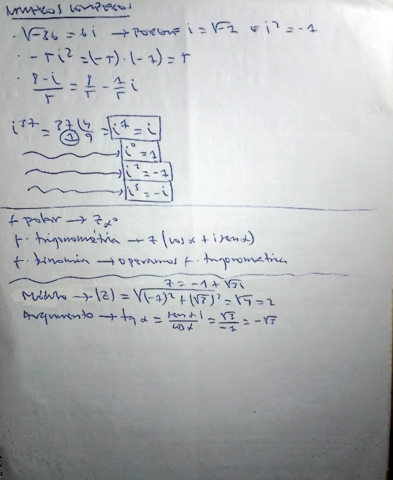 NÚMEROS COMPLEJOS
· √-36 = 6i → PORQUE i = √-1 Y i² = -1
· -5i² = (-5)·(-1) = 5
· 8-i/5 = 8/5 - 1/5 i
i³⁷ = 37 |4 1 9 = i¹ = i
i⁰ = 1
i² = -1
i³ = -i
f polar → zα°
f. trigonométria → z (cos α + i sen α)
f. binomia → operamos f. trigonométrica
z = -1 + √3i
Módulo → |z| = √(-1)² + (√3)² = √4 = 2
Argumento → tg α = sen α/cos α = √3/-1 = -√3